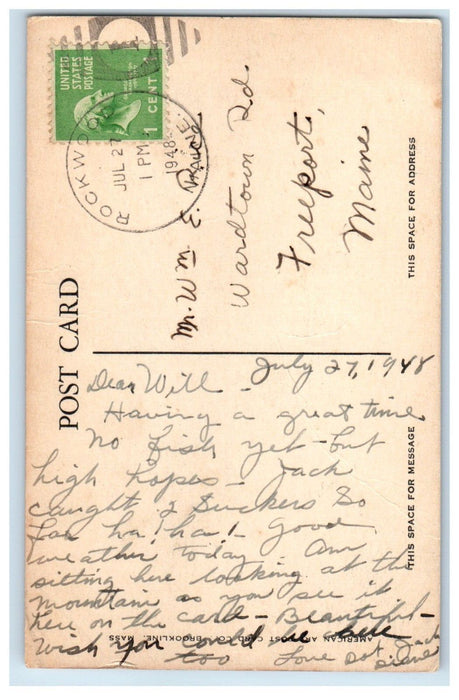 UNITED
STATES
POSTAGE
1 CENT
ROCKWOOD MAINE
JUL 27
1 PM
1948
POST CARD
Mr. Wm E.
Wardtown Rd.
Freeport,
Maine
THIS SPACE FOR ADDRESS
July 27, 1948
Dear Will -
Having a great time
No fish yet - but
high hopes - Jack
caught 2 suckers so
far ha! ha! - Good
weather today. Am
sitting here looking at the
mountain as you see it
here on the card - Beautiful -
Wish you could see
too Love Dot, Jack
Diane
THIS SPACE FOR MESSAGE
AMERICAN ART POST CARD CO., BROOKLINE, MASS.